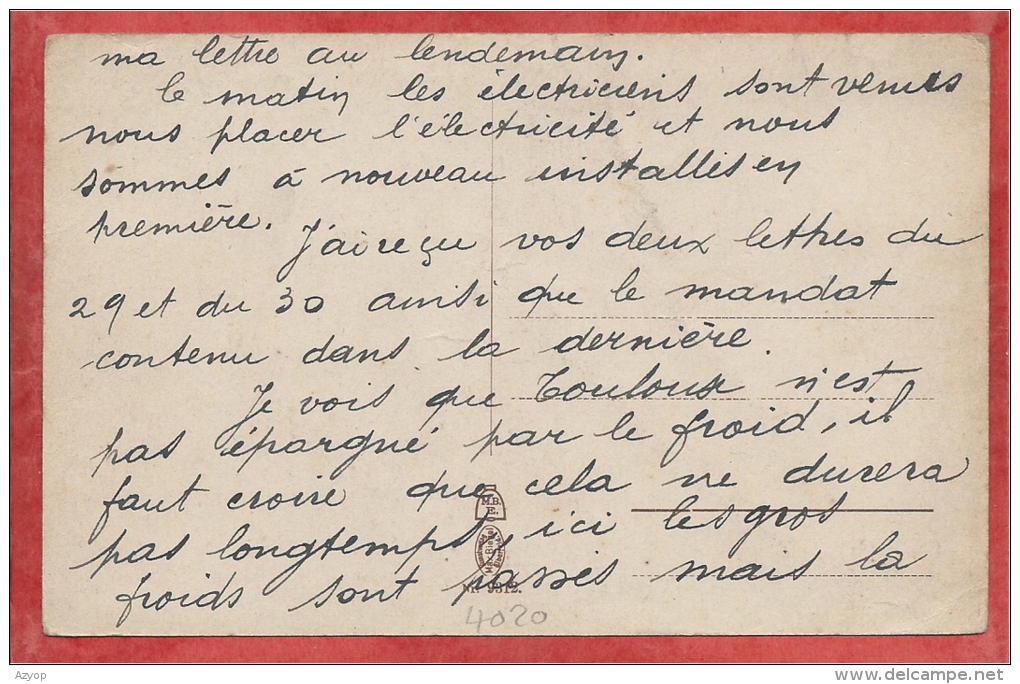 ma lettre au lendemain.
le matin les électriciens sont venus
nous placer l'électricité et nous
sommes à nouveau installés en
première.
J'ai reçu vos deux lettres du
29 et du 30 ainsi que le mandat
contenu dans la dernière.
Je vois que Toulouse n'est
pas épargné par le froid, il
faut croire que cela ne durera
pas longtemps, ici les gros
froids sont passés mais la
M.B.
E.
Nr. 9312.
4020
Azyop
www.delcampe.net